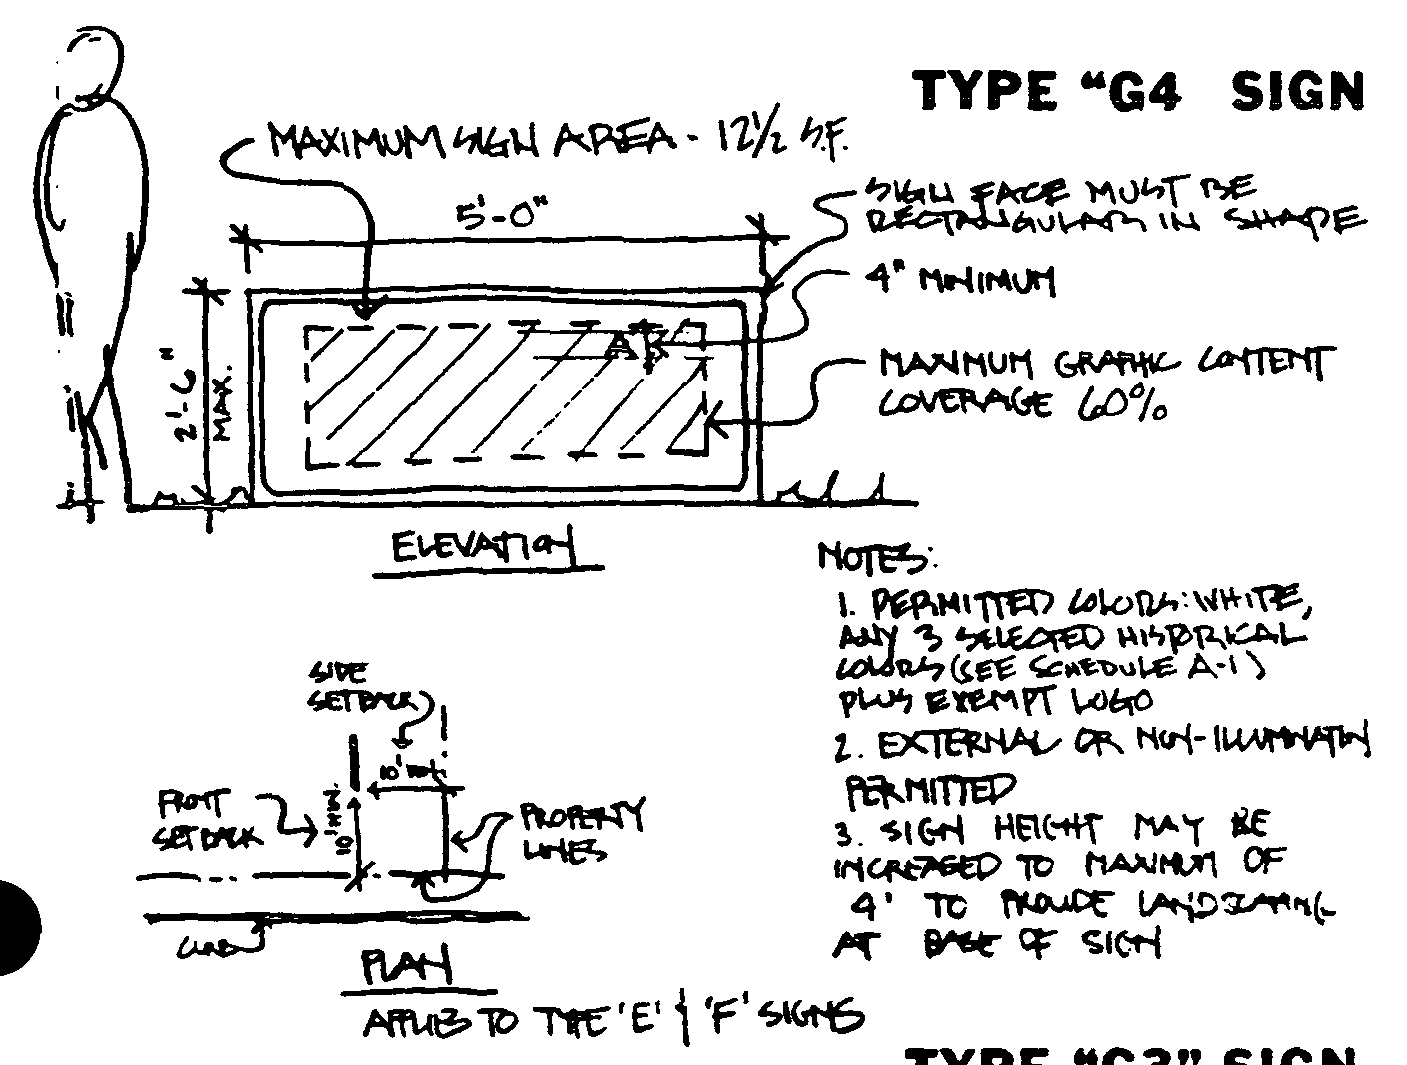 TYPE "G4 SIGN
MAXIMUM SIGN AREA - 12 1/2 S.F.
5'-0"
SIGN FACE MUST BE
RECTANGULAR IN SHAPE
4" MINIMUM
2'-6"
MAX.
MAXIMUM GRAPHIC CONTENT
COVERAGE 60%
ELEVATION
NOTES:
1. PERMITTED COLORS: WHITE,
ANY 3 SELECTED HISTORICAL
COLORS (SEE SCHEDULE A-1)
PLUS EXEMPT LOGO
2. EXTERNAL OR NON-ILLUMINATION
PERMITTED
3. SIGN HEIGHT MAY BE
INCREASED TO MAXIMUM OF
4' TO PROVIDE LANDSCAPING
AT BASE OF SIGN
SIDE
SETBACK
10'
FRONT
SETBACK
10' MIN.
PROPERTY
LINES
CURB
PLAN
APPLIES TO TYPE 'E' & 'F' SIGNS
TYPE "G3" SIGN